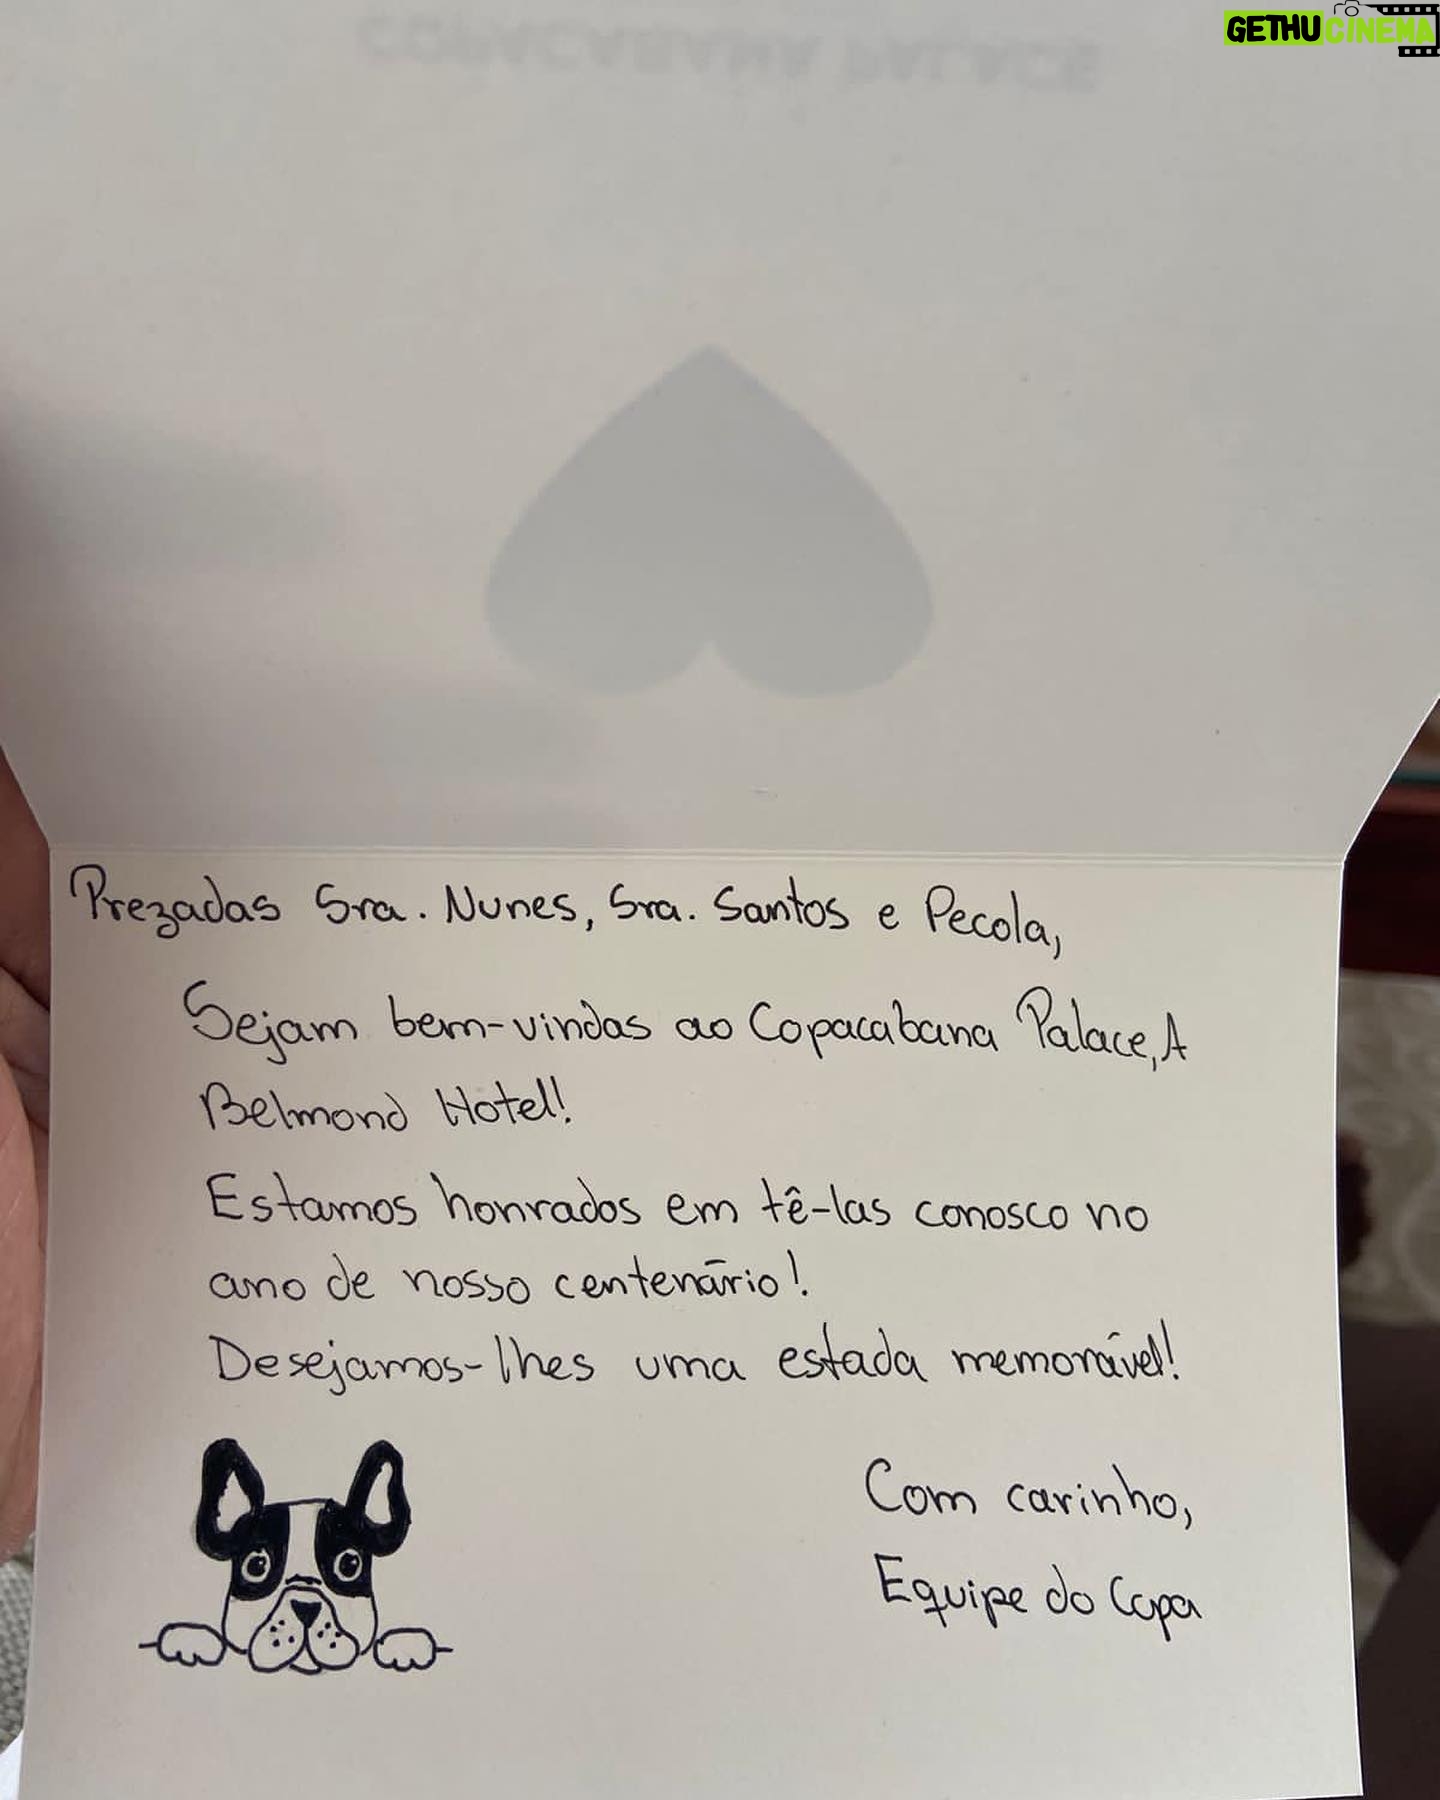 GETHUCINEMA
COPACABANA PALACE
Prezadas Sra. Nunes, Sra. Santos e Pecola,
Sejam bem-vindas ao Copacabana Palace, A
Belmond Hotel!
Estamos honrados em tê-las conosco no
ano de nosso centenário!
Desejamos-lhes uma estada memorável!
Com carinho,
Equipe do Copa